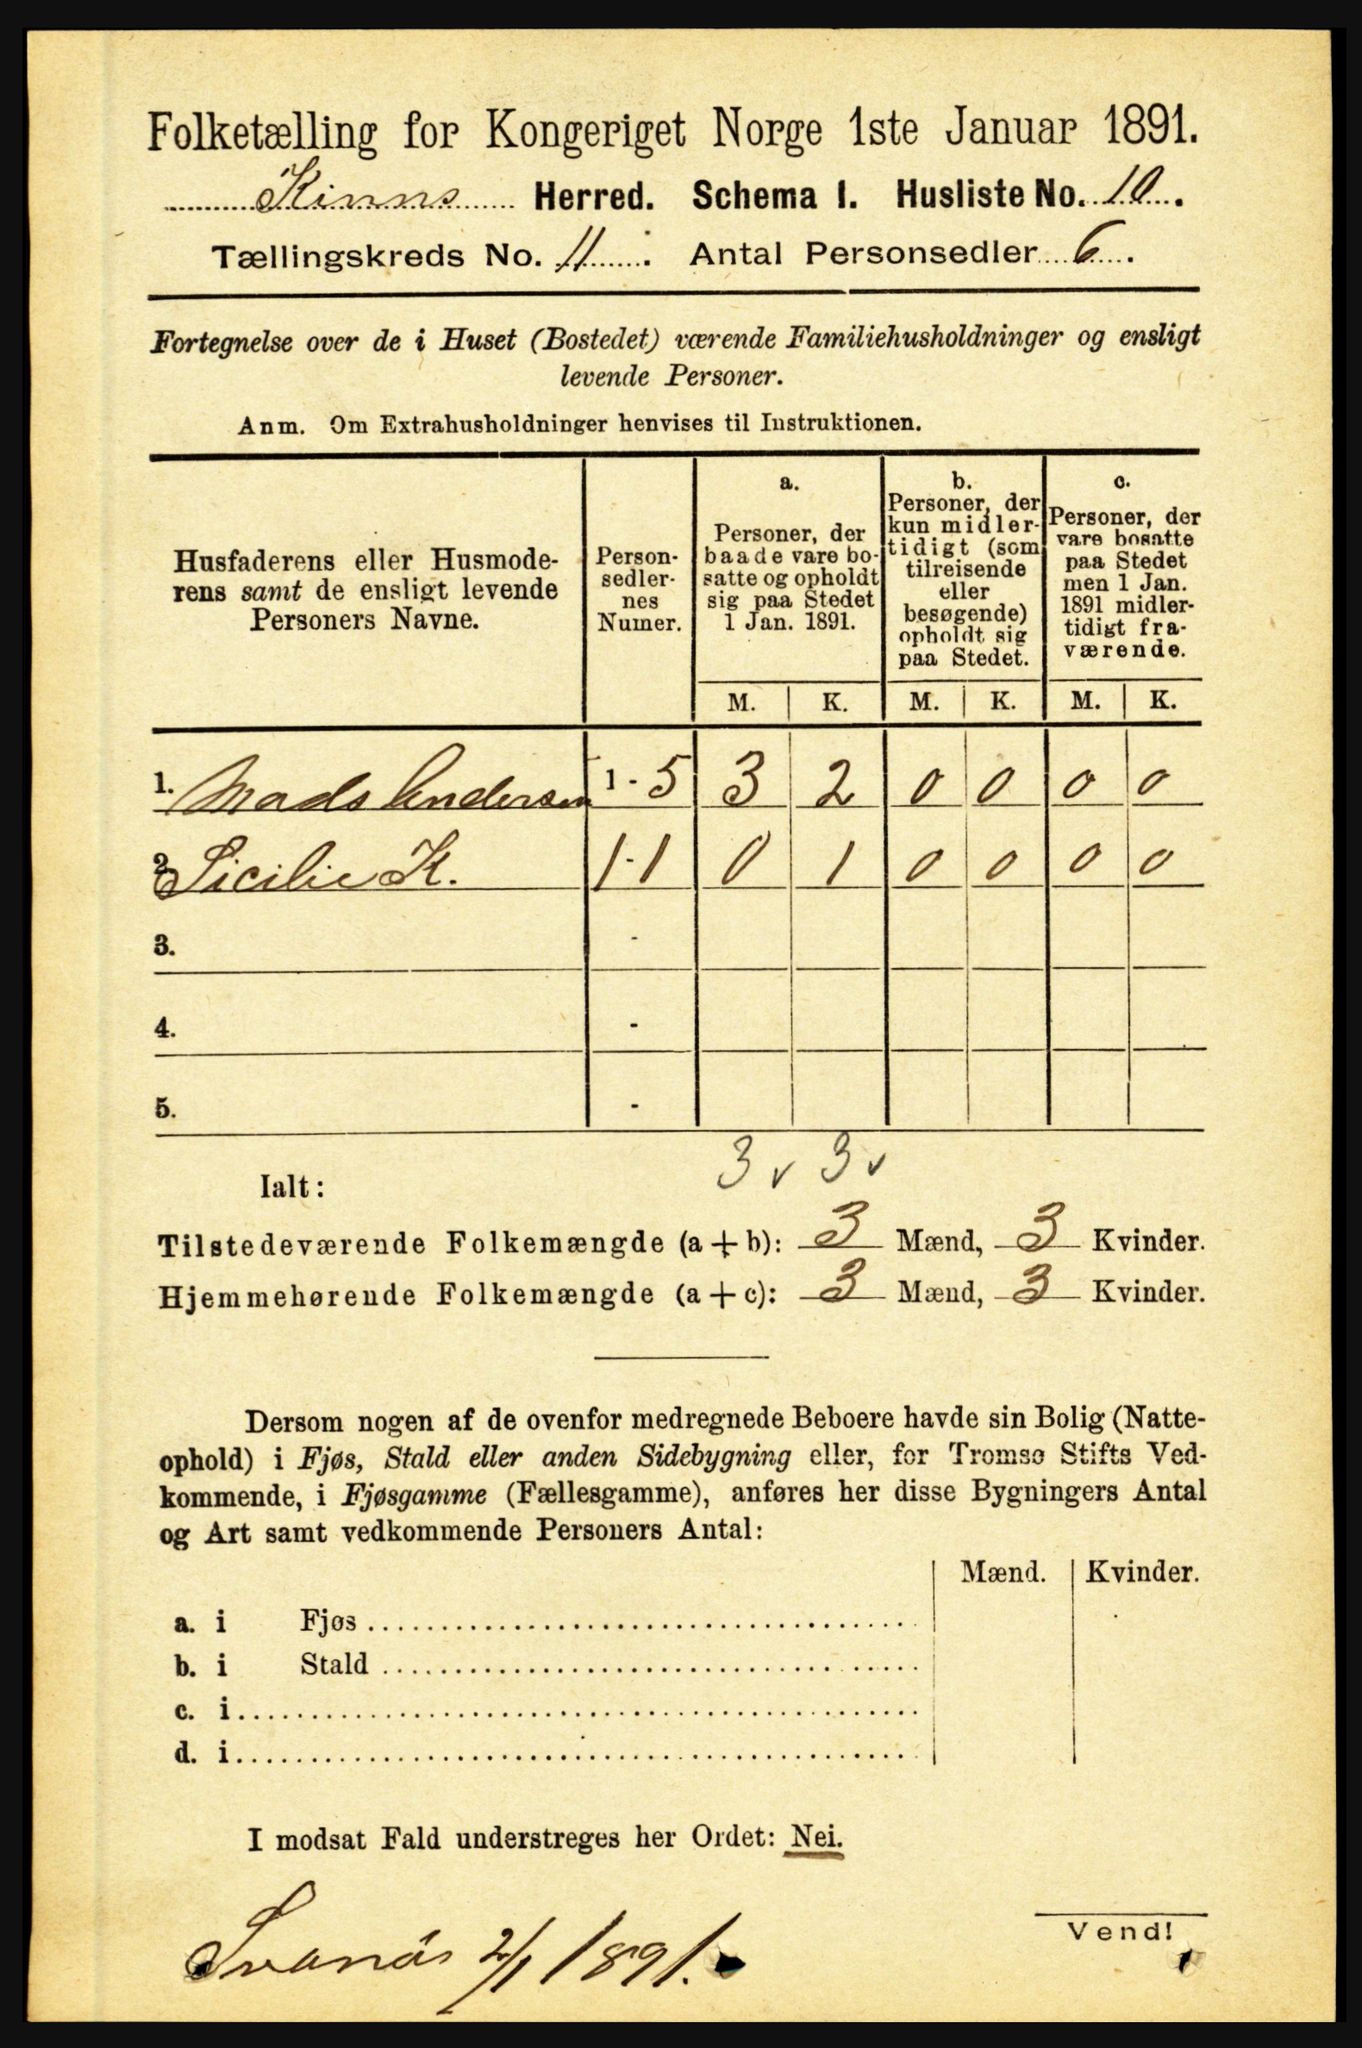 Folketælling for Kongeriget Norge 1ste Januar 1891.
Kinns Herred. Schema I. Husliste No. 10.
Tællingskreds No. 11. Antal Personsedler 6.
Fortegnelse over de i Huset (Bostedet) værende Familiehusholdninger og ensligt
levende Personer.
Anm. Om Extrahusholdninger henvises til Instruktionen.
Husfaderens eller Husmode-
rens samt de ensligt levende
Personers Navne.
Person-
sedler-
nes
Numer.
a.
Personer, der
baade vare bo-
satte og opholdt
sig paa Stedet
1 Jan. 1891.
b.
Personer, der
kun midler-
tidigt (som
tilreisende
eller
besøgende)
opholdt sig
paa Stedet.
c.
Personer, der
vare bosatte
paa Stedet
men 1 Jan.
1891 midler-
tidigt fra-
værende.
M. K. M. K. M. K.
1. Mads Andersen 1 - 5 3 2 0 0 0 0
2. Sicilie K. 1 - 1 0 1 0 0 0 0
3. -
4. -
5. -
3 v 3 v
Ialt:
Tilstedeværende Folkemængde (a + b): 3 Mænd, 3 Kvinder.
Hjemmehørende Folkemængde (a + c): 3 Mænd, 3 Kvinder.
Dersom nogen af de ovenfor medregnede Beboere havde sin Bolig (Natte-
ophold) i Fjøs, Stald eller anden Sidebygning eller, for Tromsø Stifts Ved-
kommende, i Fjøsgamme (Fællesgamme), anføres her disse Bygningers Antal
og Art samt vedkommende Personers Antal:
Mænd. Kvinder.
a. i Fjøs
b. i Stald
c. i
d. i
I modsat Fald understreges her Ordet: Nei.
Svanøs 2/1 1891.
Vend!